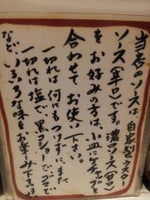 当店のソースは、自家製ウスター
ソース(辛口)です。濃口ソース(甘口)
をお好みの方は、小皿にケチャップを
合わせてお使い下さい。
一切れは何にもつけずに、また
一切れは塩で、黒コショーで、ゴマで
などいろいろな味をお楽しみ下さいませ